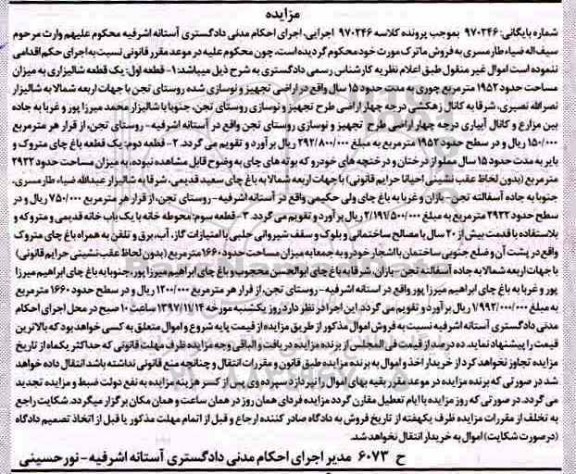 مزایده
شماره بایگانی: ۹۷۰۲۴۶ بموجب پرونده کلاسه ۹۷۰۲۴۶ اجرایی، اجرای احکام مدنی دادگستری آستانه اشرفیه محکوم علیهم وارث مرحوم
سیف‌اله ضیاء طارمسری به فروش ماترک مورث خود محکوم گردیده است، چون محکوم علیه در موعد مقرر قانونی نسبت به اجرای حکم اقدامی
ننموده است اموال غیر منقول طبق اعلام نظریه کارشناس رسمی دادگستری به شرح ذیل میباشد: ۱- قطعه اول: یک قطعه شالیزاری به میزان
مساحت حدود ۱۹۵۲ مترمربع چوری به مدت حدود ۱۵ سال واقع در اراضی تجهیز و نوسازی شده روستای تجن با جهات اربعه شمالا به شالیزار
نصراله نصیری، شرقا به کانال زهکشی درجه چهار اراضی طرح تجهیز و نوسازی روستای تجن، جنوبا با شالیزار محمد میرزا پور و غربا به جاده
بین مزارع و کانال آبیاری درجه چهار اراضی طرح تجهیز و نوسازی روستای تجن واقع در آستانه اشرفیه- روستای تجن، از قرار هر مترمربع
۱۵۰/۰۰۰ ریال و در سطح حدود ۱۹۵۲ مترمربع به مبلغ ۲۹۲/۸۰۰/۰۰۰ ریال برآورد و تقویم می گردد. ۲- قطعه دوم: یک قطعه باغ چای متروک و
بایر به مدت حدود ۱۵ سال مملو از درختان و درختچه های خودرو که بوته های چای به وضوح قابل مشاهده نبوده، به میزان مساحت حدود ۲۹۲۲
مترمربع (بدون لحاظ عقب نشینی احیانا حرایم قانونی) با جهات اربعه شمالا به باغ چای سعید قدیمی، شرقا به شالیزار عبداله ضیاء طارمسری،
جنوبا به جاده آسفالته تجن- بازان و غربا به باغ چای ولی حکیمی واقع در آستانه اشرفیه- روستای تجن، از قرار هر مترمربع ۷۵۰/۰۰۰ ریال و در
سطح حدود ۲۹۲۲ مترمربع به مبلغ ۲/۱۹۱/۵۰۰/۰۰۰ ریال برآورد و تقویم می گردد. ۳- قطعه سوم: محوطه خانه با یک باب خانه قدیمی و متروکه و
بلااستفاده با قدمت بیش از ۲۰ سال با مصالح ساختمانی و بلوک و سقف شیروانی حلبی با امتیازات گاز، آب، برق و تلفن به همراه باغ چای متروک
واقع در پشت آن و ضلع جنوبی ساختمان با اشجار خودرو به جمعا به میزان مساحت حدود ۱۶۶۰ مترمربع (بدون لحاظ عقب نشینی حرایم قانونی)
با جهات اربعه شمالا به جاده آسفالته تجن- بازان، شرقا به باغ چای ابوالحسن محجوب و باغ چای ابراهیم میرزا پور، جنوبا به باغ چای ابراهیم میرزا
پور و غربا به باغ چای ابراهیم میرزا پور واقع در آستانه اشرفیه- روستای تجن، از قرار هر مترمربع ۱۲۰۰/۰۰۰ ریال و در سطح حدود ۱۶۶۰ مترمربع
به مبلغ ۱/۹۹۲/۰۰۰/۰۰۰ ریال برآورد و تقویم می گردد. این اجرا در نظر دارد روز یکشنبه مورخه ۱۳۹۷/۱۱/۱۴ ساعت ۱۰ صبح در محل اجرای احکام
مدنی دادگستری آستانه اشرفیه نسبت به فروش اموال مذکور از طریق مزایده از قیمت پایه شروع و اموال متعلق به کسی خواهد بود که بالاترین
قیمت را پیشنهاد نماید. ده درصد از قیمت فی المجلس از برنده مزایده دریافت و الباقی وجه مزایده ظرف مهلت قانونی که حداکثر یکماه از تاریخ
مزایده تجاوز نخواهد کرد از خریدار اخذ و اموال به برنده مزایده طبق قانون و مقررات انتقال و چنانچه منع قانونی نداشته باشد انتقال داده خواهد
شد در صورتی که برنده مزایده در موعد مقرر بقیه بهای اموال را نپردازد سپرده وی پس از کسر هزینه مزایده به نفع دولت ضبط و مزایده تجدید
می گردد. در صورتی که روز مزایده با ایام تعطیل مقارن گردد مزایده فردای همان روز در همان ساعت و همان مکان برگزار میگردد. شکایت راجع
به تخلف از مقررات مزایده ظرف یکهفته از تاریخ فروش به دادگاه صادر کننده ارجاع و قبل از اتمام مهلت مذکور یا قبل از اتخاذ تصمیم دادگاه
(در صورت شکایت) اموال به خریدار انتقال نخواهد شد.
ح ۶۰۷۳ مدیر اجرای احکام مدنی دادگستری آستانه اشرفیه- نور حسینی